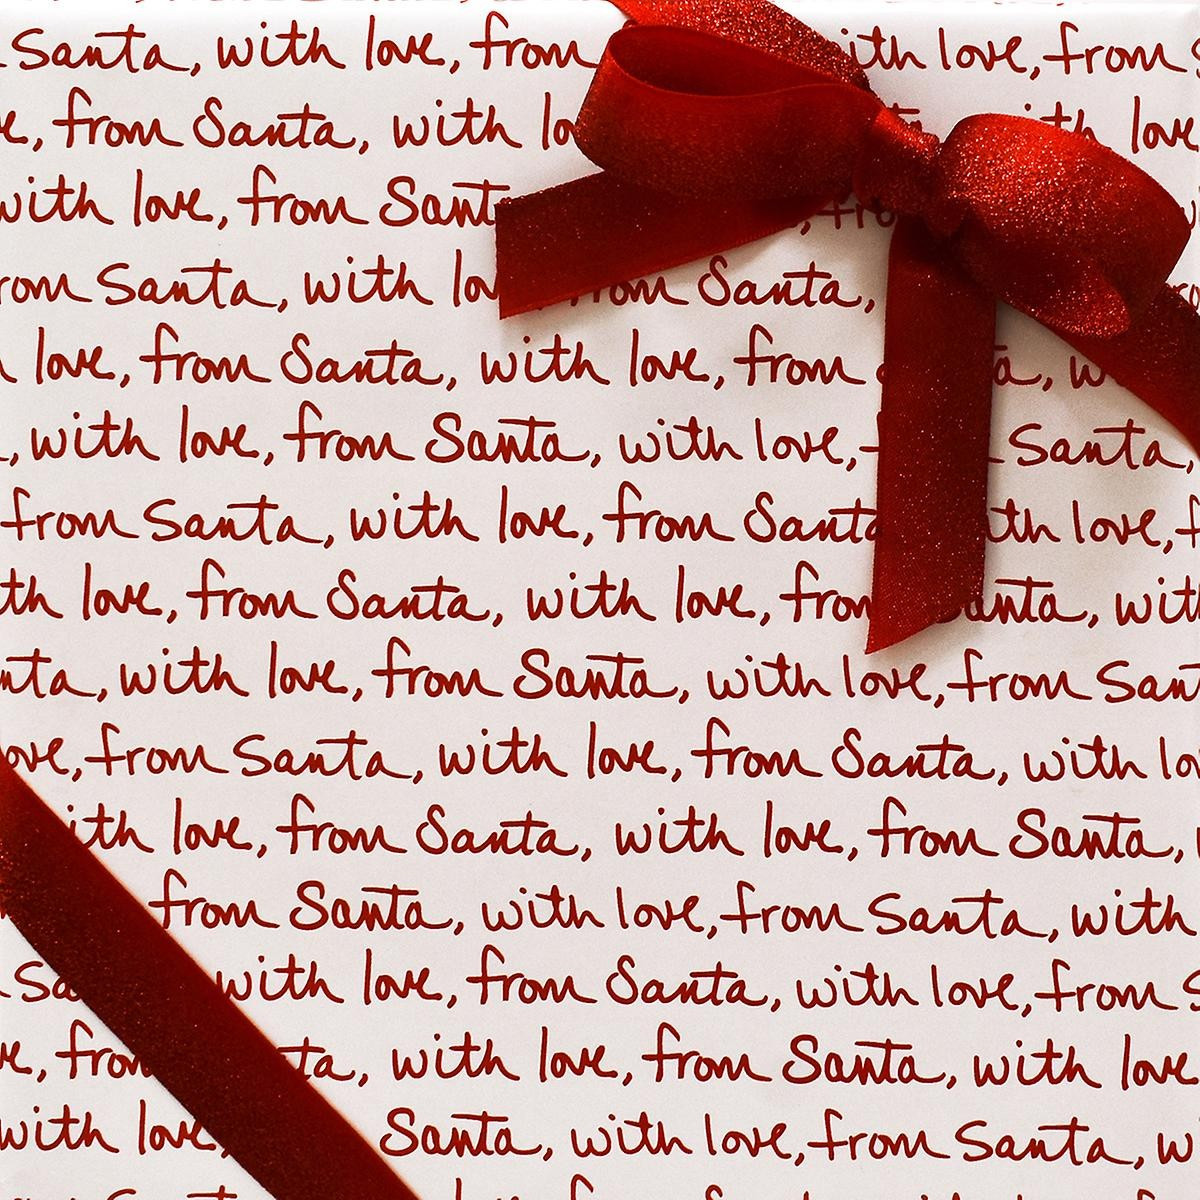 Santa, with love, from with love, from
from Santa, with love
with love, from Santa
from Santa, with from Santa,
love, from Santa, with love, from
, with love, from Santa, with love, Santa,
from Santa, with love, from Santa with love,
with love, from Santa, with love, from Santa, with
Santa, with love, from Santa, with love, from Santa
love, from Santa, with love, from Santa, with
with love, from Santa, with love, from Santa,
from Santa, with love, from Santa, with
with love, from Santa, with love, from
from Santa, with love, from Santa, with love
with love, Santa, with love, from Santa,